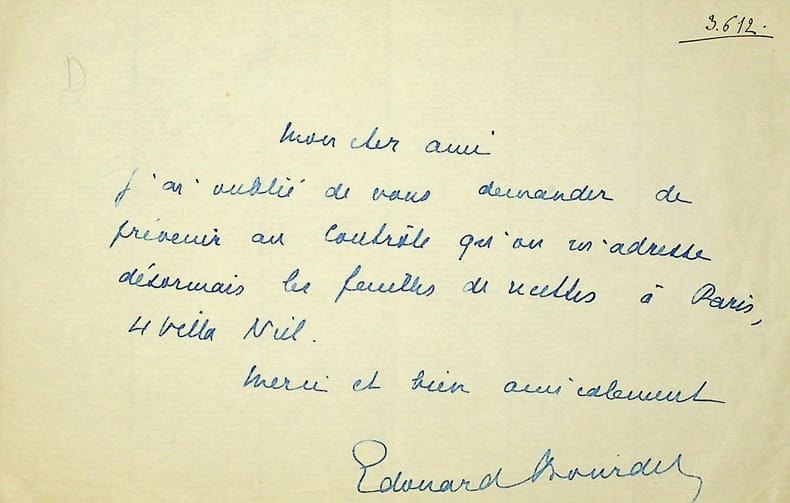 3.6.12.
D
Mon cher ami
J'ai oublié de vous demander de
prévenir au contrôle qu'on m'adresse
désormais les feuilles de recettes à Paris,
4 Villa Niel.
Merci et bien amicalement
Edouard Bourdet